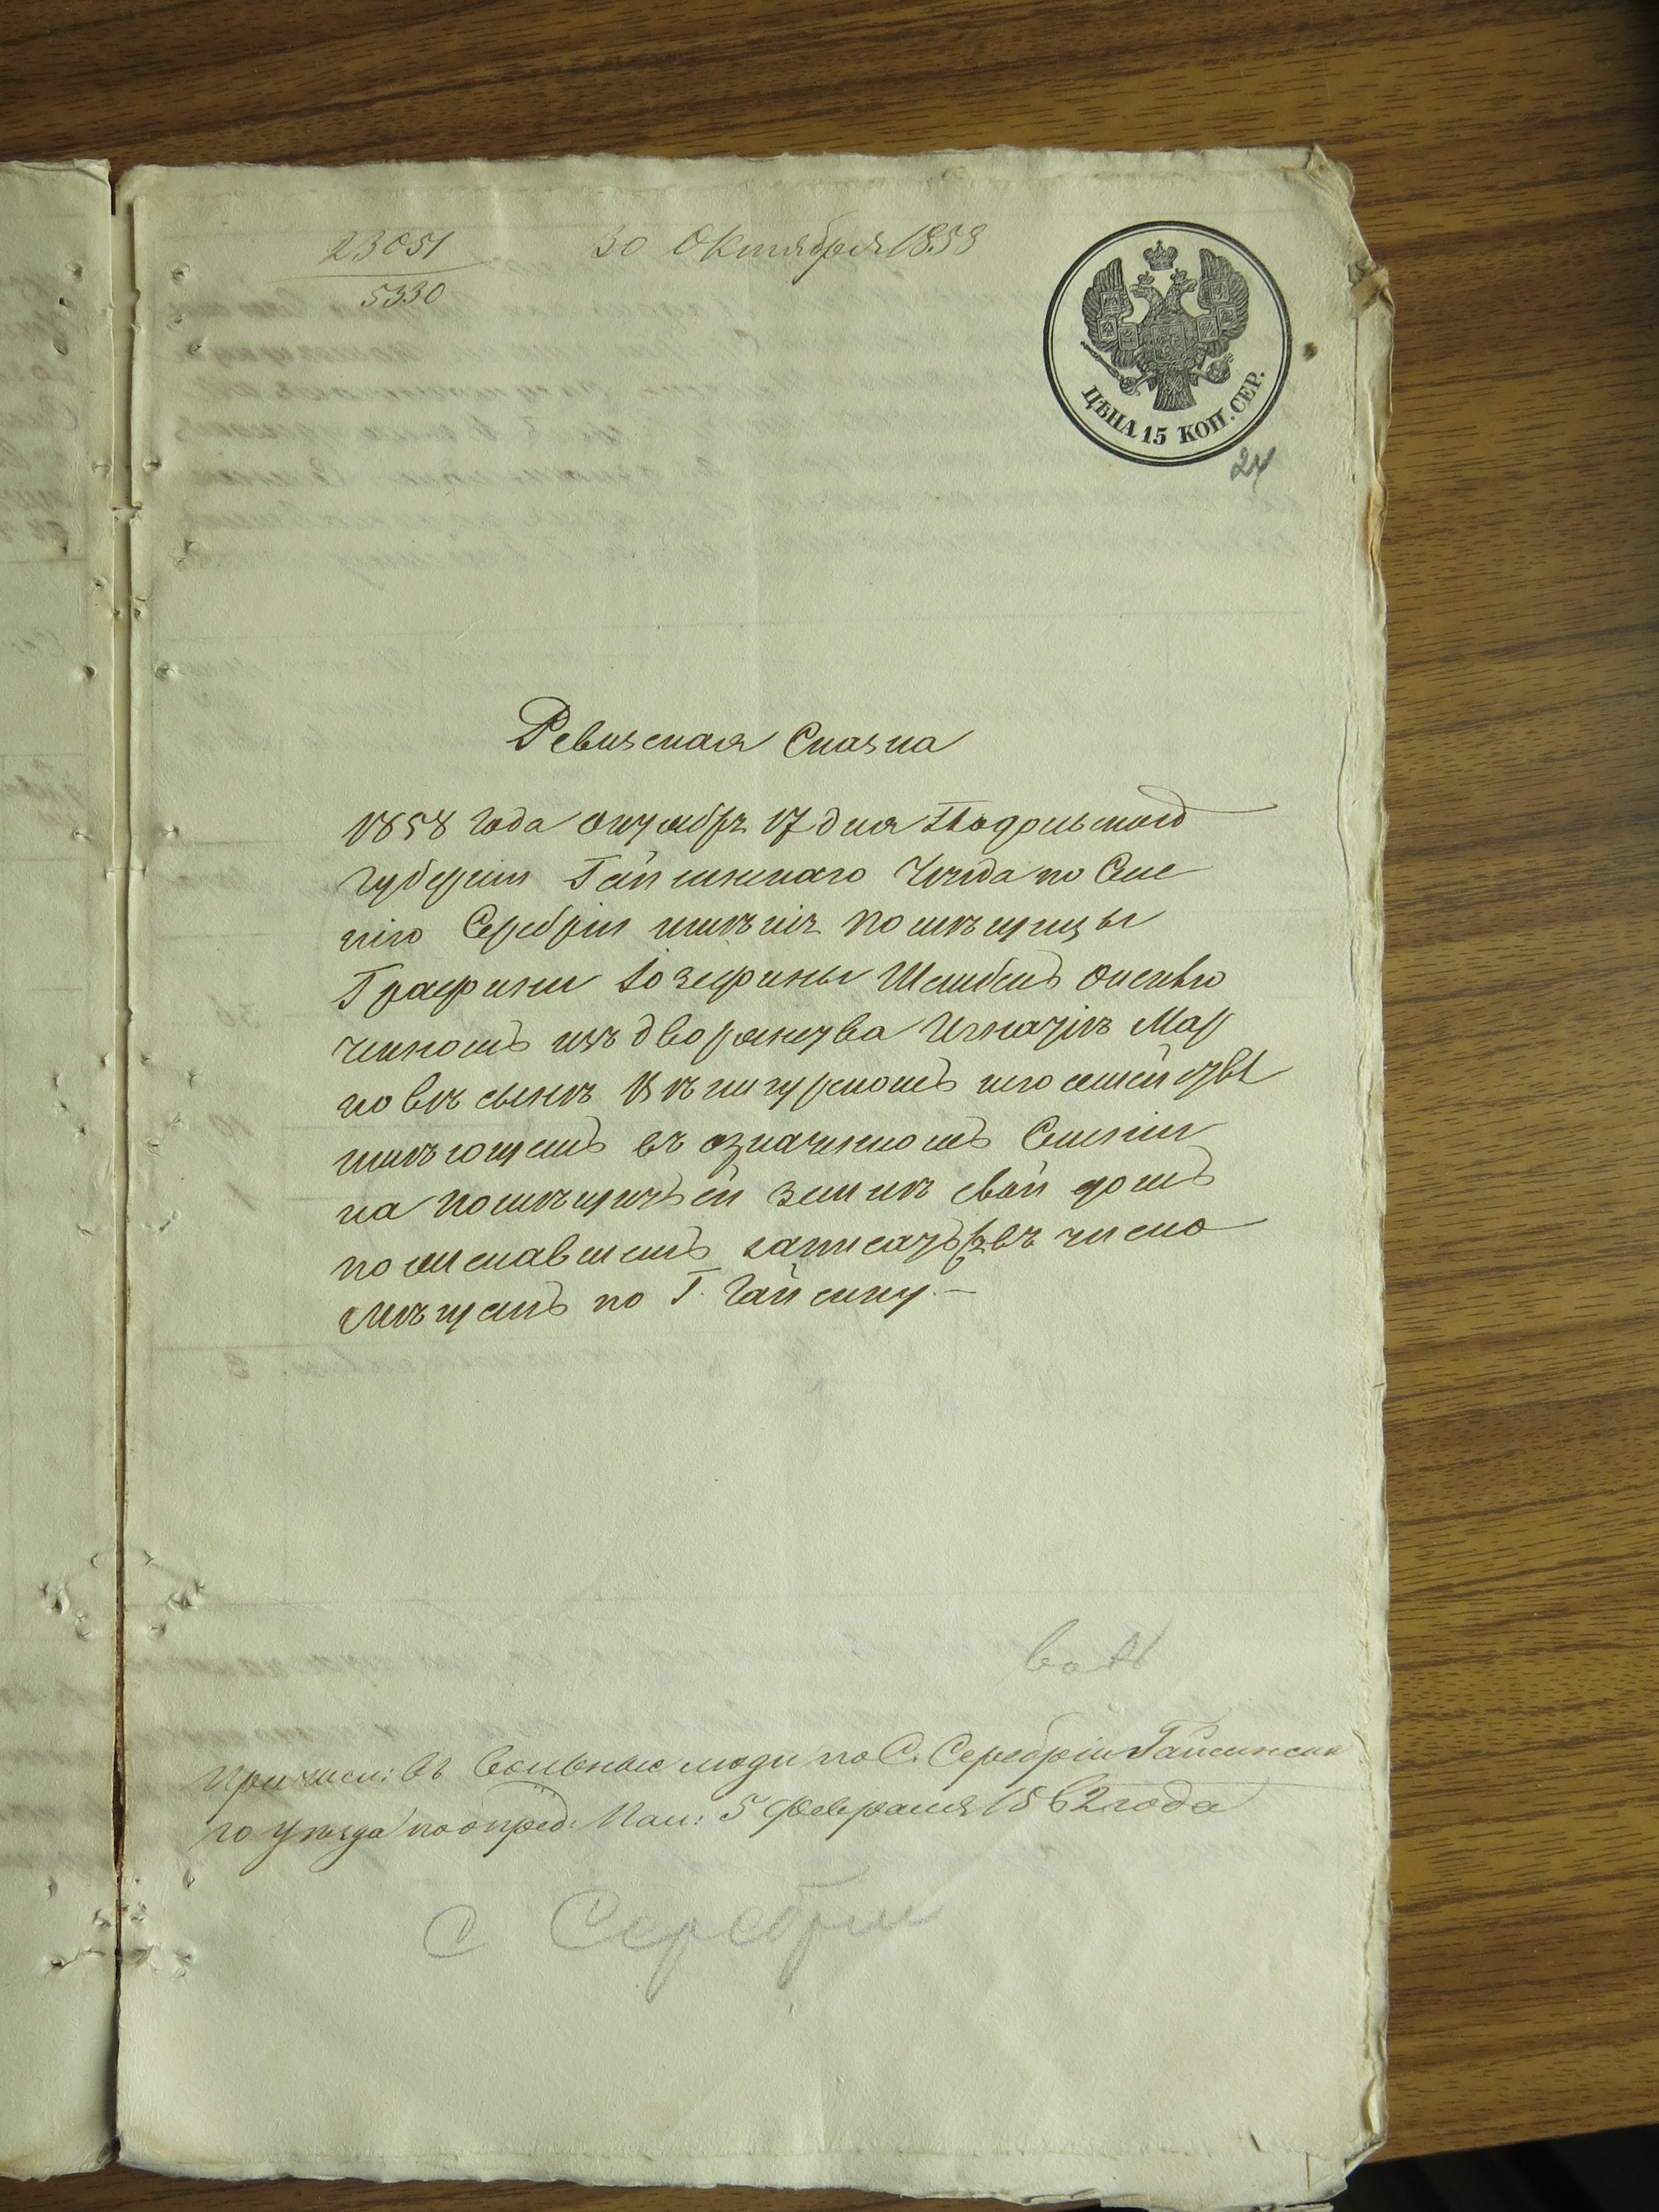 23051
5330
30 Октября 1858
ЦѢНА 15 КОП. СЕР.
Ревизская Сказка
1858 года октября 17 дня Подольской
губернии Гайсинскаго Уезда по Селе
нію Серебріи имѣнія помѣщицы
Графини Іозефины Шембекъ о
изъ дворянства Игнатіѣ Мар
ковѣ сынѣ и его семействѣ
имѣющемъ въ означенномъ Селеніи
на помѣщичьей землѣ свой домъ
пожелавшемъ записаться въ число
Мѣщанъ по Г. Гайсину.—
Причисл: въ вольные люди по С. Серебріи Гайсинска
го уѣзда по опред: Пал: 5 февраля 1862 года
С Серебри